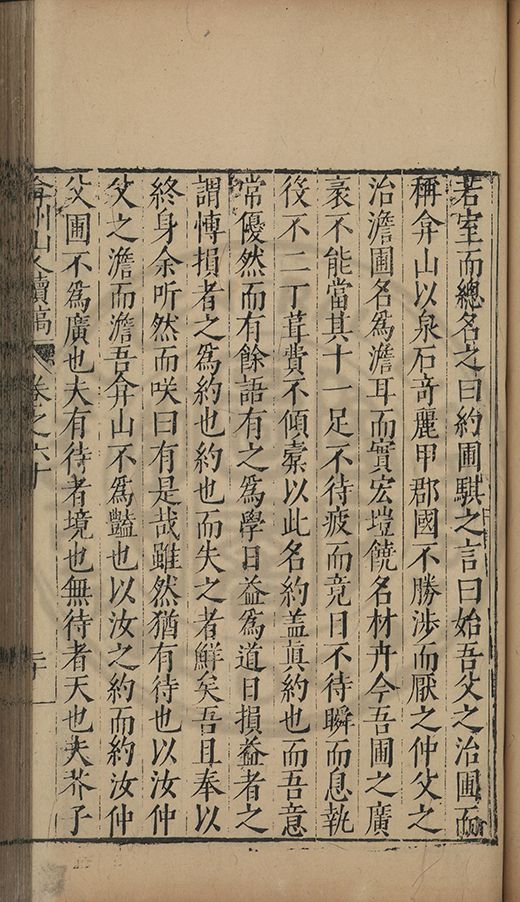 若室而總名之曰約圃騏之言曰始吾父之治圃而
稱弇山以泉石竒麗甲郡國不勝涉而厭之仲父之
治澹圃名爲澹耳而實宏塏饒名材卉今吾圃之廣
袤不能當其十一足不待疲而竟目不待瞬而息執
役不二丁葺費不傾橐以此名約盖眞約也而吾意
常優然而有餘語有之爲學日益爲道日損益者之
謂愽損者之爲約也約也而失之者鮮矣吾且奉以
終身余听然而咲曰有是哉雖然猶有待也以汝仲
父之澹而澹吾弇山不爲豔也以汝之約而約汝仲
父圃不爲廣也夫有待者境也無待者天也夫芥子
弇州山人續稿 卷之六十 二十一